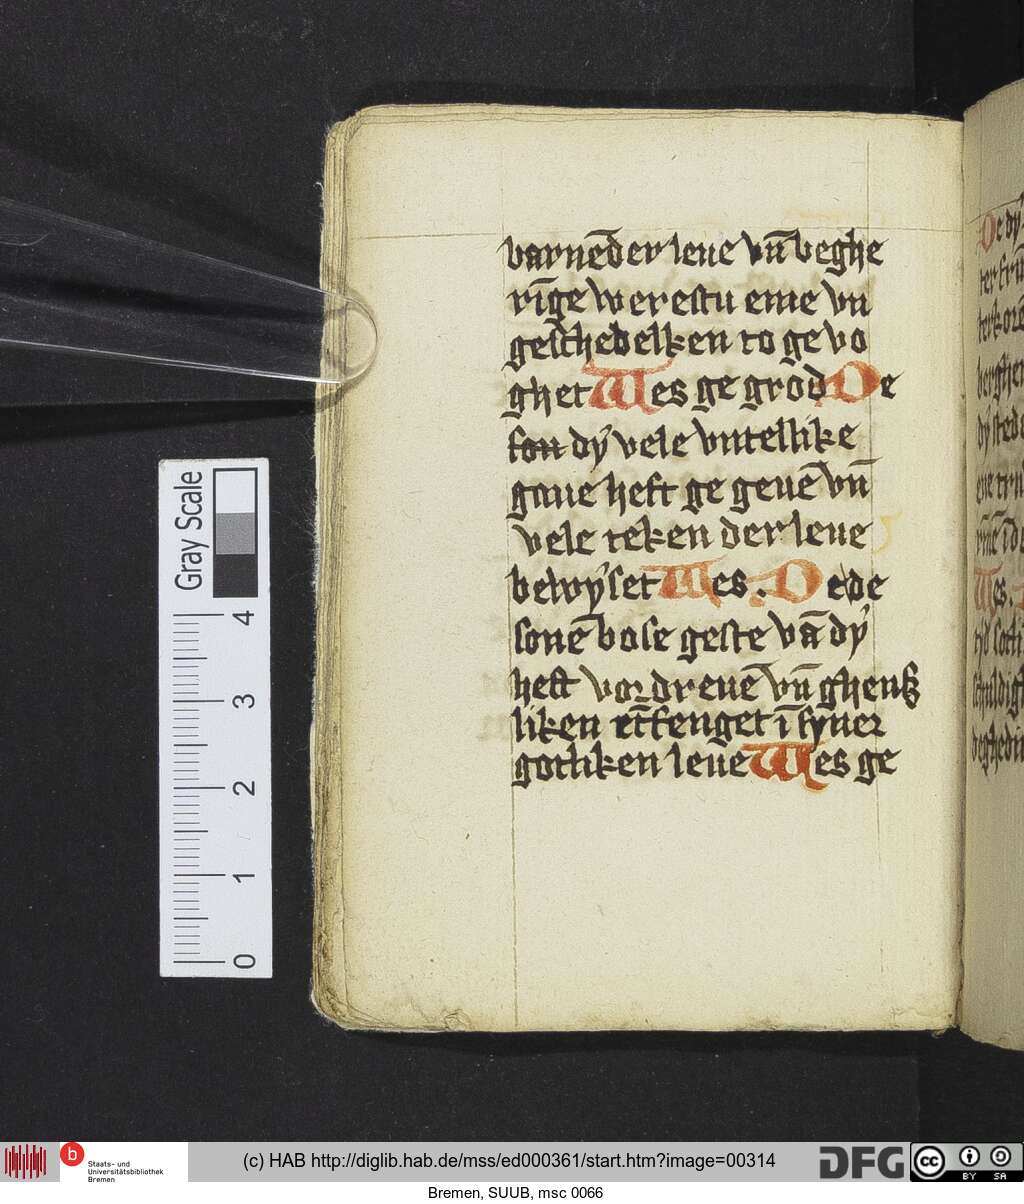 barnēder leue vn̄ beghe
rīge werestu eme vn
geschedelken to ge vo
ghet Wes ge grod De
son dy vele vntellike
gaue heft ge geuē vn̄
vele teken der leue
bewyset Wes. De de
souē bose geste vā dy
heft vordreuē vn̄ ghens
liken ētfenget ī syner
gotliken leue Wes ge
Gray Scale
4
3
2
1
0
b Staats- und
Universitätsbibliothek
Bremen
(c) HAB http://diglib.hab.de/mss/ed000361/start.htm?image=00314
DFG
cc BY SA
Bremen, SUUB, msc 0066